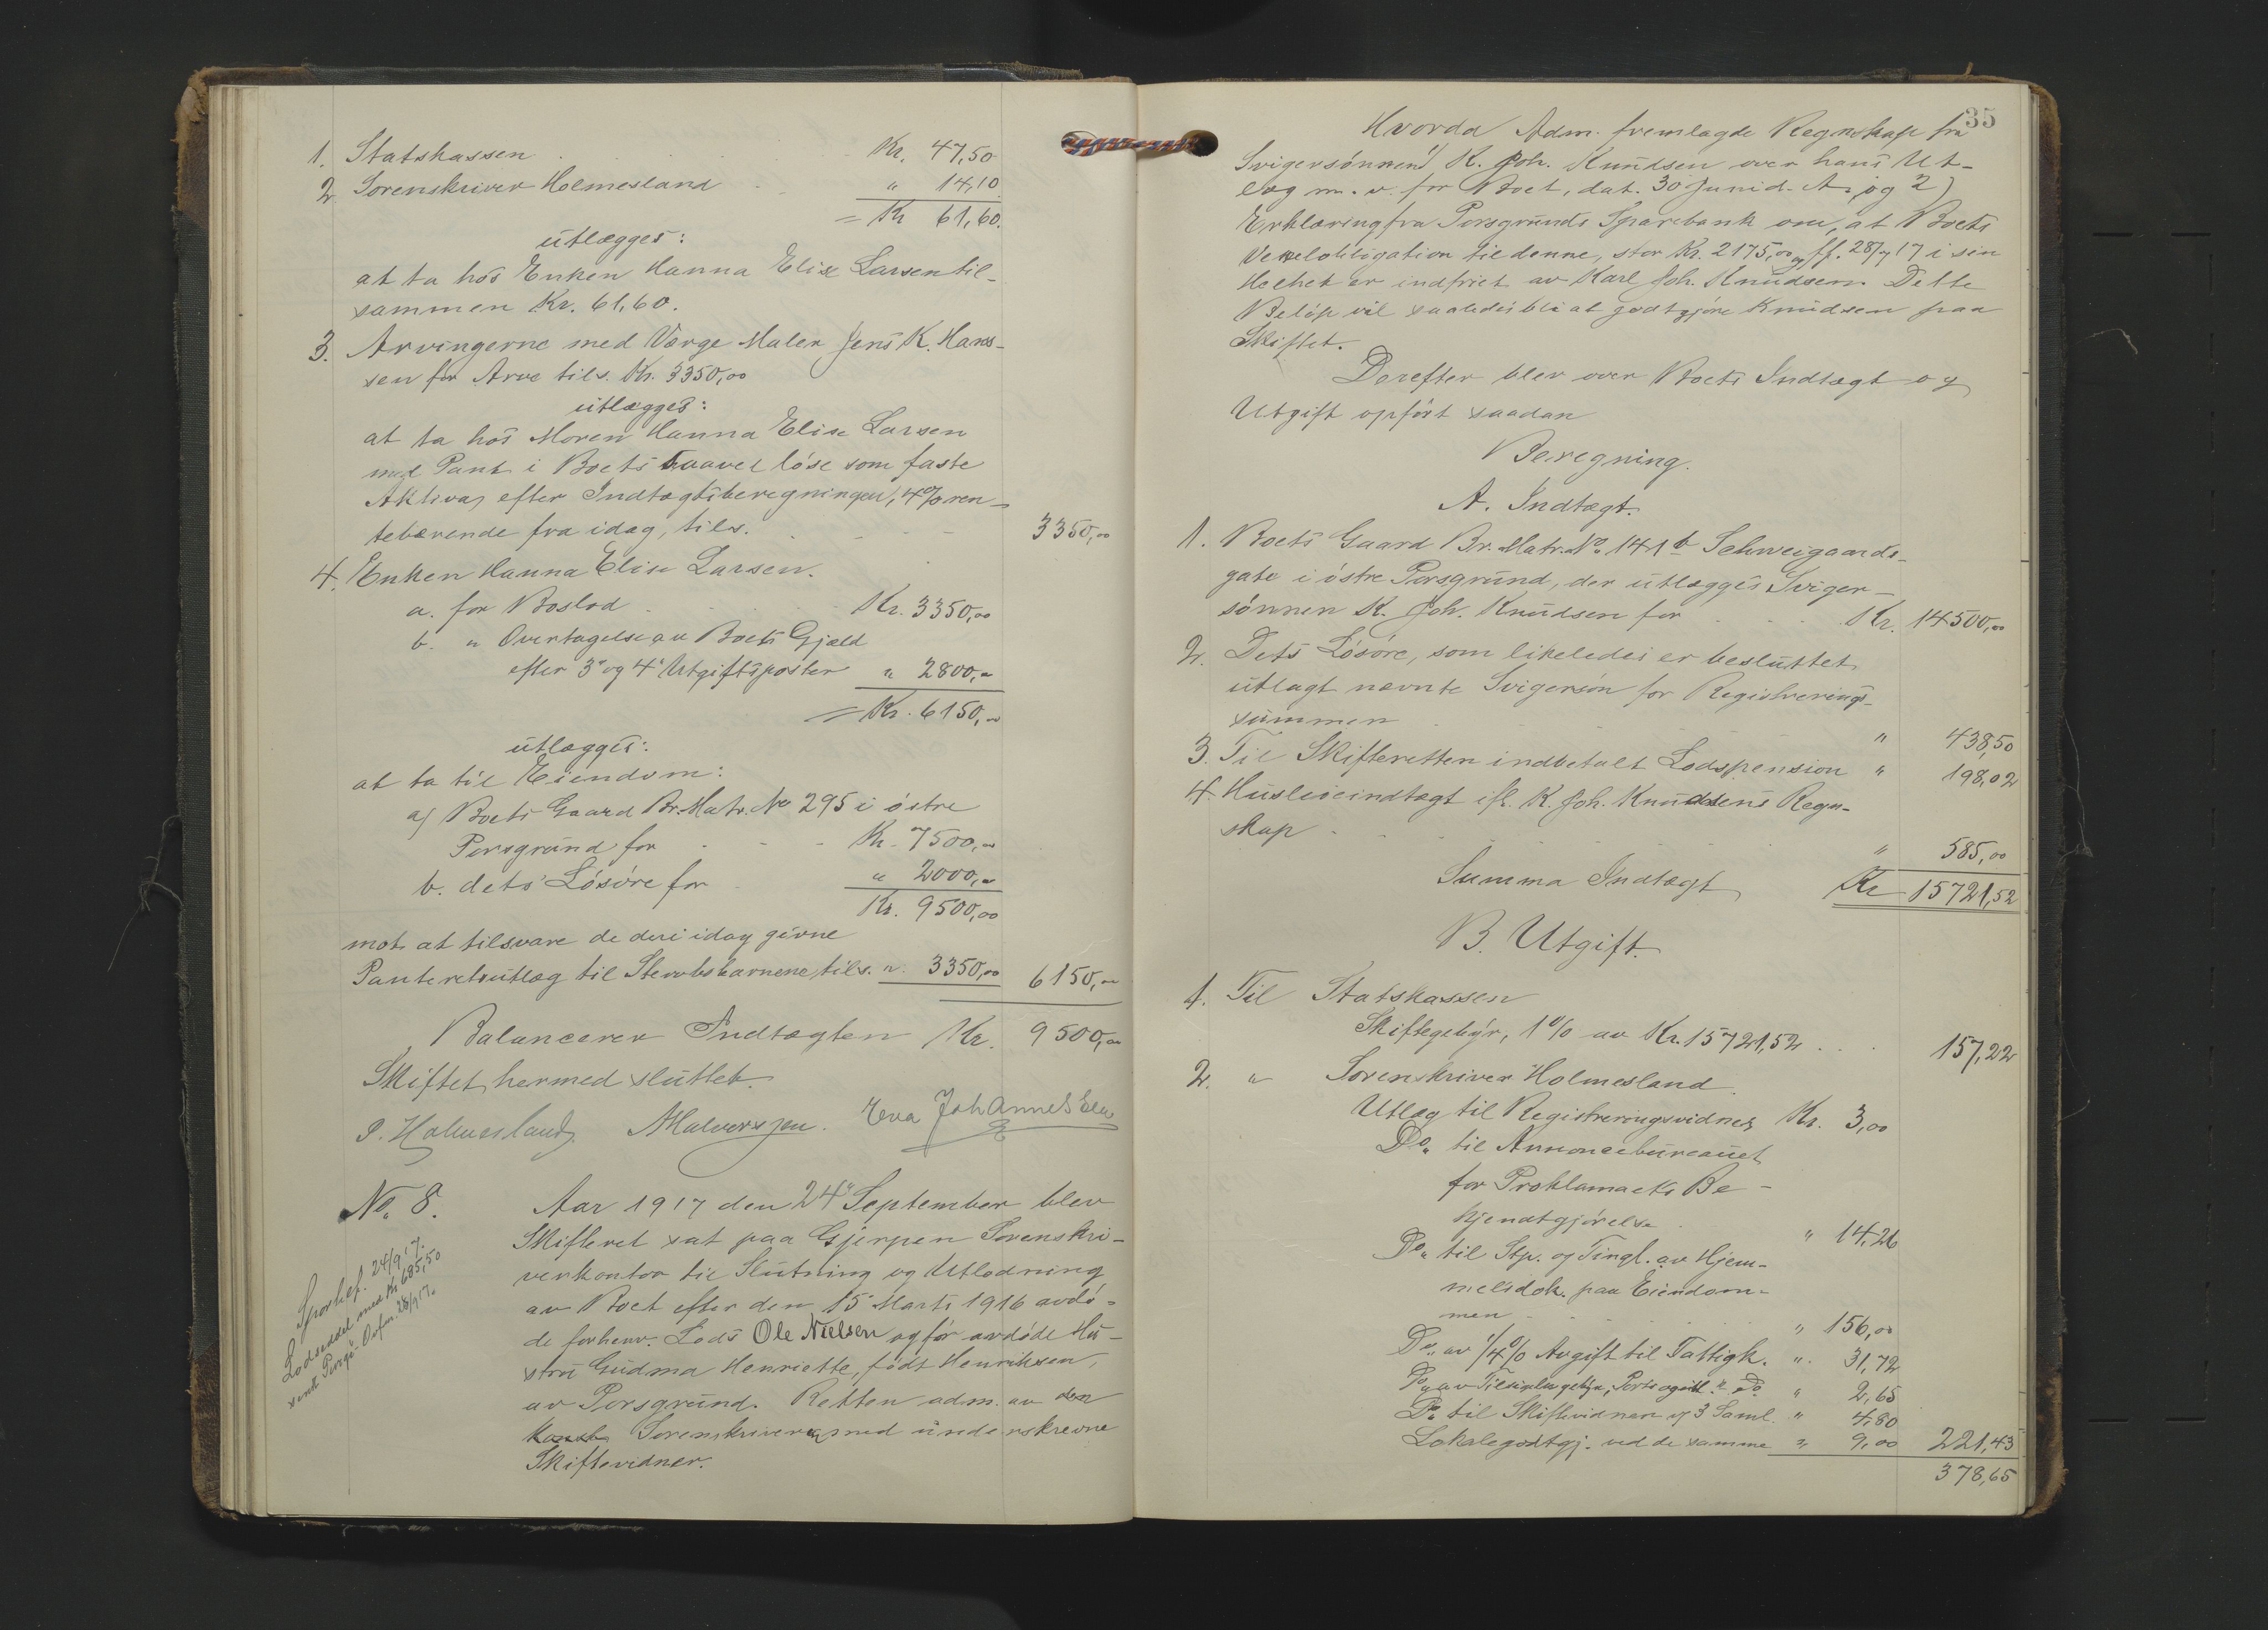 1. Statskassen Kr. 47,50
2 Sorenskriver Holmesland " 14,10
= Kr 61,60.
utlægges:
at ta hos Enken Hanna Elise Larsen til-
sammen Kr. 61,60.
3. Arvingerne med Værge Maler Jens K. Hans-
sen for Arve tils. Kr. 3350,00
utlægges:
at ta hos Moren Hanna Elise Larsen
med Pant i Boets saavel løse som faste
Aktiva, efter Indtægtsberegningen, 4% ren-
tebærende fra idag, tils. 3350,00
4. Enken Hanna Elise Larsen.
a. for Boslod Kr. 3350,00
b. " Overtagelse av Boets Gjæld
efter 3" og 4" Utgiftsposter " 2800,00
= Kr. 6150,00
utlægges:
at ta til Eiendom:
a) Boets Gaard Br. Matr. No 295 i østre
Porsgrund for Kr. 7500,00
b. dets Løsøre for " 2000,00
Kr. 9500,00
mot at tilsvare de deri idag givne
Panteretsutlæg til Stervbobarnene tils. " 3350,00 6150,00
Balancerer Indtægten Kr. 9500,00
Skiftet hermed sluttet.
P. Holmesland Halvorsen. Eva Johannes
No. 8. Aar 1917 den 24" September blev
Skifteret sat paa Gjerpen Sorenskri-
verkontor til Slutning og Utlodning
av Boet efter den 15" Marts 1916 avdø-
de forhenv. Lods Ole Nielsen og før avdøde Hu-
stru Gudma Henriette, født Henriksen,
av Porsgrund. Retten adm. av den
Sorenskriver med underskrevne
Skiftevidner.
24/9 17.
Lodseddel med Kr 685,50
sendt 28/9 17.
35
Hvorda Adm. fremlagde Regnskap fra
Svigersønnen 1) K. Joh. Knudsen over hans Ut-
læg m. v. for Boet, dat. 30 Juni d. A., og 2)
Erklæring fra Porsgrunds Sparebank om, at Boets
Vexelobligation til denne, stor Kr. 2175,00 pr. 28/7 17 i sin
Helhet er indfriet av Karl Joh. Knudsen. Dette
Beløp vil saaledes bli at godtgjøre Knudsen paa
Skiftet.
Derefter blev over Boets Indtægt og
Utgift opført saadan
Beregning.
A. Indtægt.
1. Boets Gaard Br. Matr. No 141 b Schweigaards-
gate i østre Porsgrund, der utlægges Sviger-
sønnen K. Joh. Knudsen for Kr. 14500,00
2. Dets Løsøre, som likeledes er besluttet
utlagt nævnte Svigersøn for Registrerings-
summen " 438,50
3. Til Skifteretten indbetalt Lodspension " 198,02
4. Husleieindtægt ifl. K. Joh. Knudsens Regn-
skap " 585,00
Summa Indtægt Kr 15721,52
B. Utgift.
1. Til Statskassen
Skiftegebyr, 1% av Kr. 15721,52 157,22
2. " Sorenskriver Holmesland.
Utlæg til Registreringsvidner Kr. 3,00
Do. til Annoncebureauet
for Proklamaets Be-
kjendtgjørelse " 14,26
Do. til Stp. og Tingl. av Hjem-
melsdok. paa Eiendom-
men " 156,00
Do. av 1/4% Avgift til Fattigk. " 31,72
Do. av Do. " 2,65
Do. til Skiftevidner v/ 3 Saml. " 4,80
Lokalegodtgj. ved de samme " 9,00 221,43
378,65